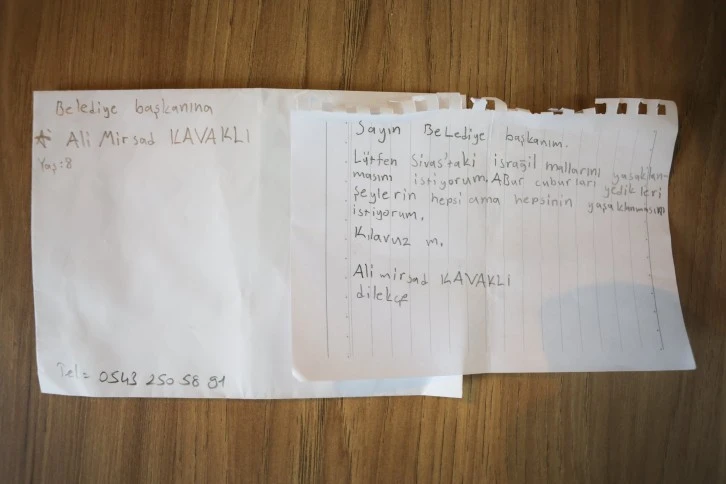 Belediye başkanına
* Ali Mirsad KAVAKLI
Yaş:8
Tel= 0543 250 58 91
Sayın Belediye başkanım.
Lütfen Sivas'taki israğil mallarını yasaklan-
masını istiyorum. Abur cuburları yedikleri
şeylerin hepsi ama hepsinin yaşaklanmasını
istiyorum.
Kılavuz m.
Ali mirsad KAVAKLI
dilekçe